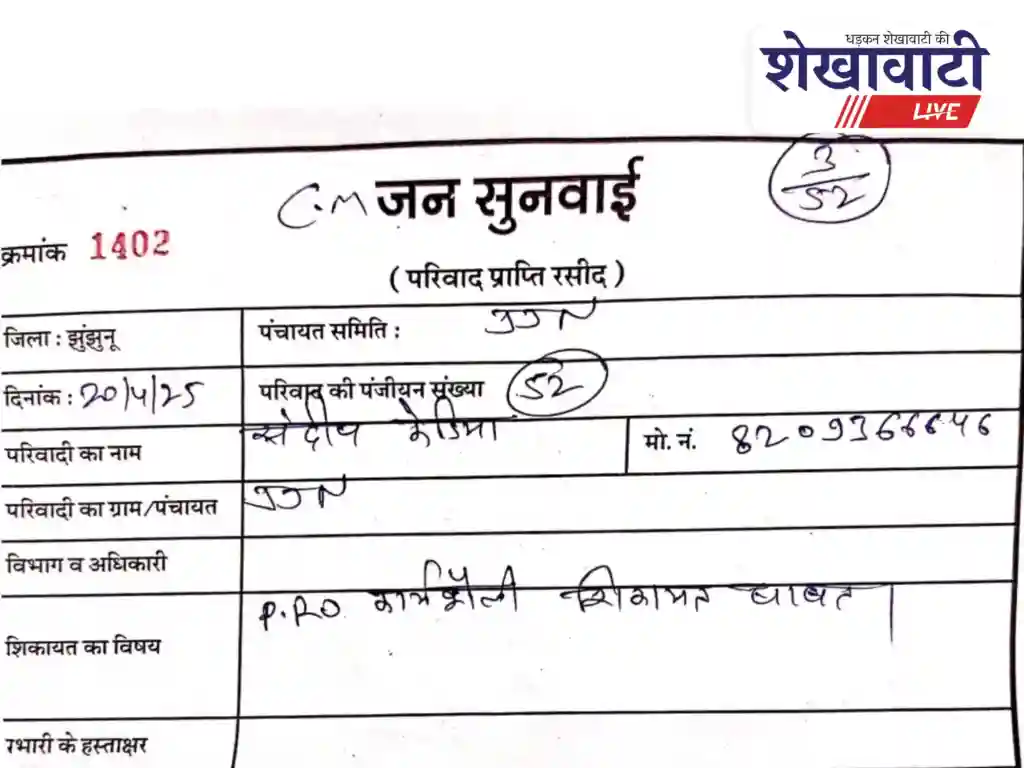 धड़कन शेखावाटी की
शेखावाटी
LIVE
C.M जन सुनवाई
3/52
क्रमांक 1402
( परिवाद प्राप्ति रसीद )
जिला : झुंझुनू
पंचायत समिति : JJN
दिनांक : 20/4/25
परिवाद की पंजीयन संख्या 52
परिवादी का नाम संदीप केडिया
मो. नं. 8209366646
परिवादी का ग्राम/पंचायत JJN
विभाग व अधिकारी
शिकायत का विषय P.RO कार्यशैली शिकायत बाबत।
रभारी के हस्ताक्षर